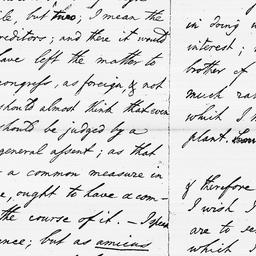 ile, but two; I mean the
reditors; and there it would
have left the matter to
congress, as foreign, & not
should almost think that even
should be judged by a
general assent; as that
- a common measure in
e, ought to have a com-
the course of it. - I speak
ence; but as amicus
in doing w
interest;
brother of
much ra
which I h
plant.
if therefore
I wish I
are to se
which I